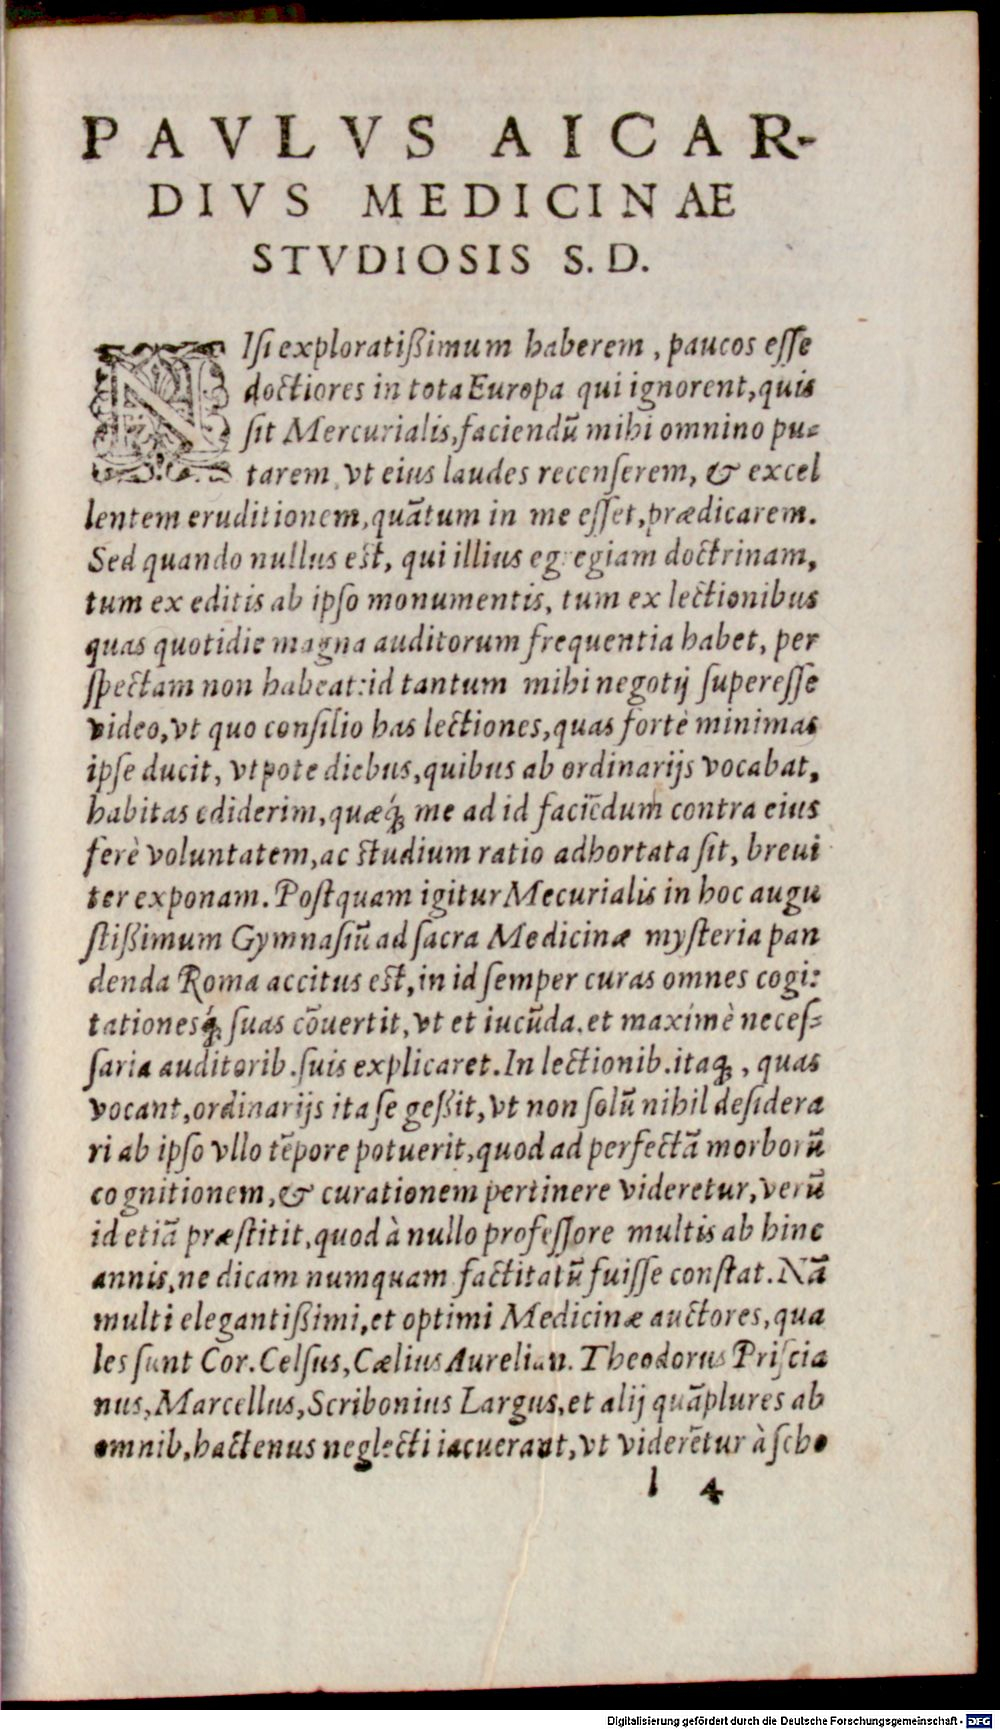 PAVLVS AICAR-
DIVS MEDICINAE
STVDIOSIS S. D.
NIſi exploratißimum haberem, paucos eſſe
doctiores in tota Europa qui ignorent, quis
ſit Mercurialis, faciendũ mihi omnino pu-
tarem vt eius laudes recenſerem, & excel
lentem eruditionem, quãtum in me eſſet, prædicarem.
Sed quando nullus est, qui illius egregiam doctrinam,
tum ex editis ab ipſo monumentis, tum ex lectionibus
quas quotidie magna auditorum frequentia habet, per
ſpectam non habeat: id tantum mihi negotij ſupereſſe
video, vt quo conſilio has lectiones, quas fortè minimas
ipſe ducit, vtpote diebus, quibus ab ordinarijs vocabat,
habitas ediderim, quæq́; me ad id faciẽdum contra eius
ferè voluntatem, ac studium ratio adhortata ſit, breui
ter exponam. Poſtquam igitur Mecurialis in hoc augu
ſtißimum Gymnaſiũ ad ſacra Medicinæ myſteria pan
denda Roma accitus est, in id ſemper curas omnes cogi-
tationesq́; ſuas cõuertit, vt et iucũda, et maximè neceſ-
ſaria auditorib. ſuis explicaret. In lectionib. itaq;, quas
vocant, ordinarijs ita ſe geßit, vt non ſolũ nihil deſidera
ri ab ipſo vllo tẽpore potuerit, quod ad perfectã morborũ
cognitionem, & curationem pertinere videretur, verũ
id etiã præſtitit, quod à nullo profeſſore multis ab hinc
annis, ne dicam numquam factitatũ fuiſſe conſtat. Nã
multi elegantißimi, et optimi Medicinæ auctores, qua
les ſunt Cor. Celſus, Cælius Aurelian. Theodorus Priſcia
nus, Marcellus, Scribonius Largus, et alij quãplures ab
omnib. hactenus neglecti iacuerant, vt viderẽtur à ſcho
l 4
Digitalisierung gefördert durch die Deutsche Forschungsgemeinschaft - DFG